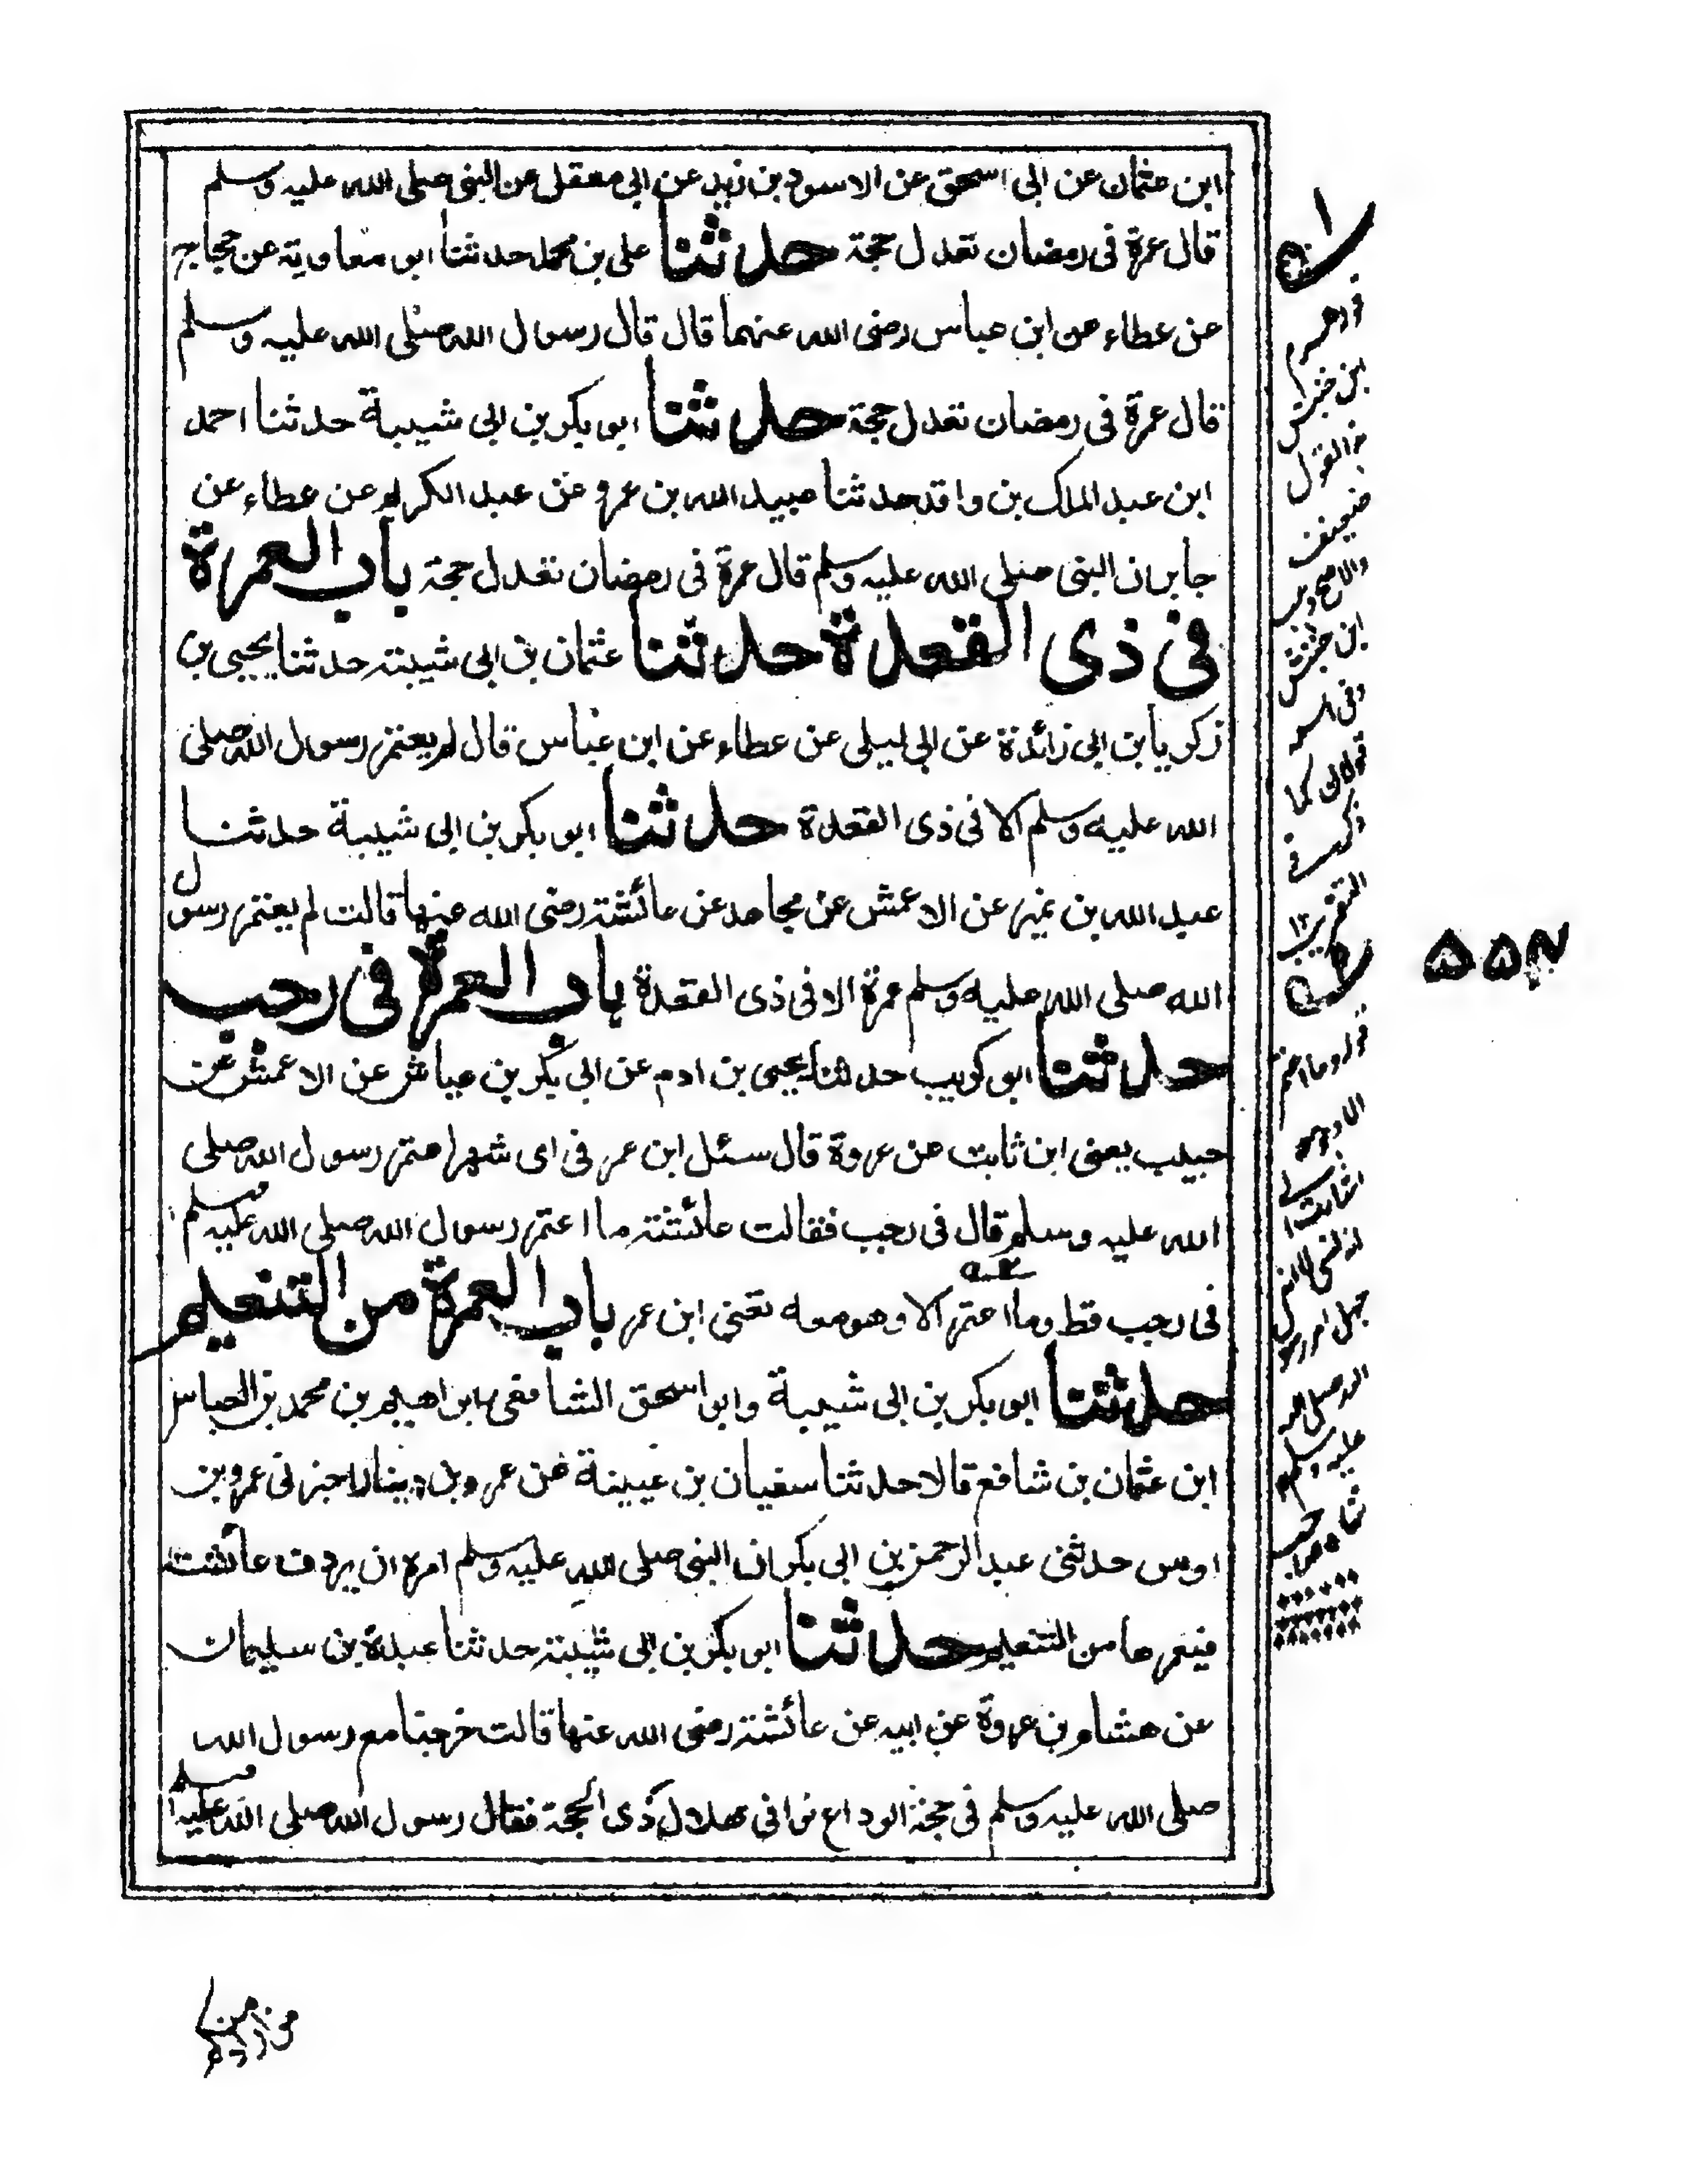 ابن عثمان عن ابى اسحق عن الاسود بن زيد عن ابى معقل عن النبى صلى الله عليه وسلم
قال عمرة فى رمضان تعدل حجة حدثنا على بن محمد حدثنا ابو معاوية عن حجاج
عن عطاء عن ابن عباس رضى الله عنهما قال قال رسول الله صلى الله عليه وسلم
قال عمرة فى رمضان تعدل حجة حدثنا ابو بكر بن ابى شيبة حدثنا احمد
ابن عبد الملك بن واقد حدثنا عبيد الله بن عمرو عن عبد الكريم عن عطاء عن
جابر ان النبى صلى الله عليه وسلم قال عمرة فى رمضان تعدل حجة باب العمرة
فى ذى القعدة حدثنا عثمان بن ابى شيبة حدثنا يحيى بن
زكريا بن ابى زائدة عن ابى ليلى عن عطاء عن ابن عباس قال لم يعتمر رسول الله صلى
الله عليه وسلم الا فى ذى القعدة حدثنا ابو بكر بن ابى شيبة حدثنا
عبد الله بن نمير عن الاعمش عن مجاهد عن عائشة رضى الله عنها قالت لم يعتمر رسول
الله صلى الله عليه وسلم عمرة الا فى ذى القعدة باب العمرة فى رجب
حدثنا ابو كريب حدثنا يحيى بن ادم عن ابى بكر بن عياش عن الاعمش عن
حبيب يعنى ابن ثابت عن عروة قال سئل ابن عمر فى اى شهر اعتمر رسول الله صلى
الله عليه وسلم قال فى رجب فقالت عائشة ما اعتمر رسول الله صلى الله عليه وسلم
فى رجب قط وما اعتمر الا وهو معه تعنى ابن عمر باب العمرة من التنعيم
حدثنا ابو بكر بن ابى شيبة وابو اسحق الشافعى ابراهيم بن محمد بن العباس
ابن عثمان بن شافع قالا حدثنا سفيان بن عيينة عن عمرو بن دينار اخبرنى عمرو بن
اوس حدثنى عبد الرحمن بن ابى بكر ان النبى صلى الله عليه وسلم امره ان يردف عائشة
فيعمرها من التنعيم حدثنا ابو بكر بن ابى شيبة حدثنا عبدة بن سليمان
عن هشام بن عروة عن ابيه عن عائشة رضى الله عنها قالت خرجنا مع رسول الله
صلى الله عليه وسلم فى حجة الوداع نوافى هلال ذى الحجة فقال رسول الله صلى الله عليه وسلم
ابن خنبش
القول
ضعيف
ابن خنبش
التقريب ١٢
الله صلى الله
عليه وسلم